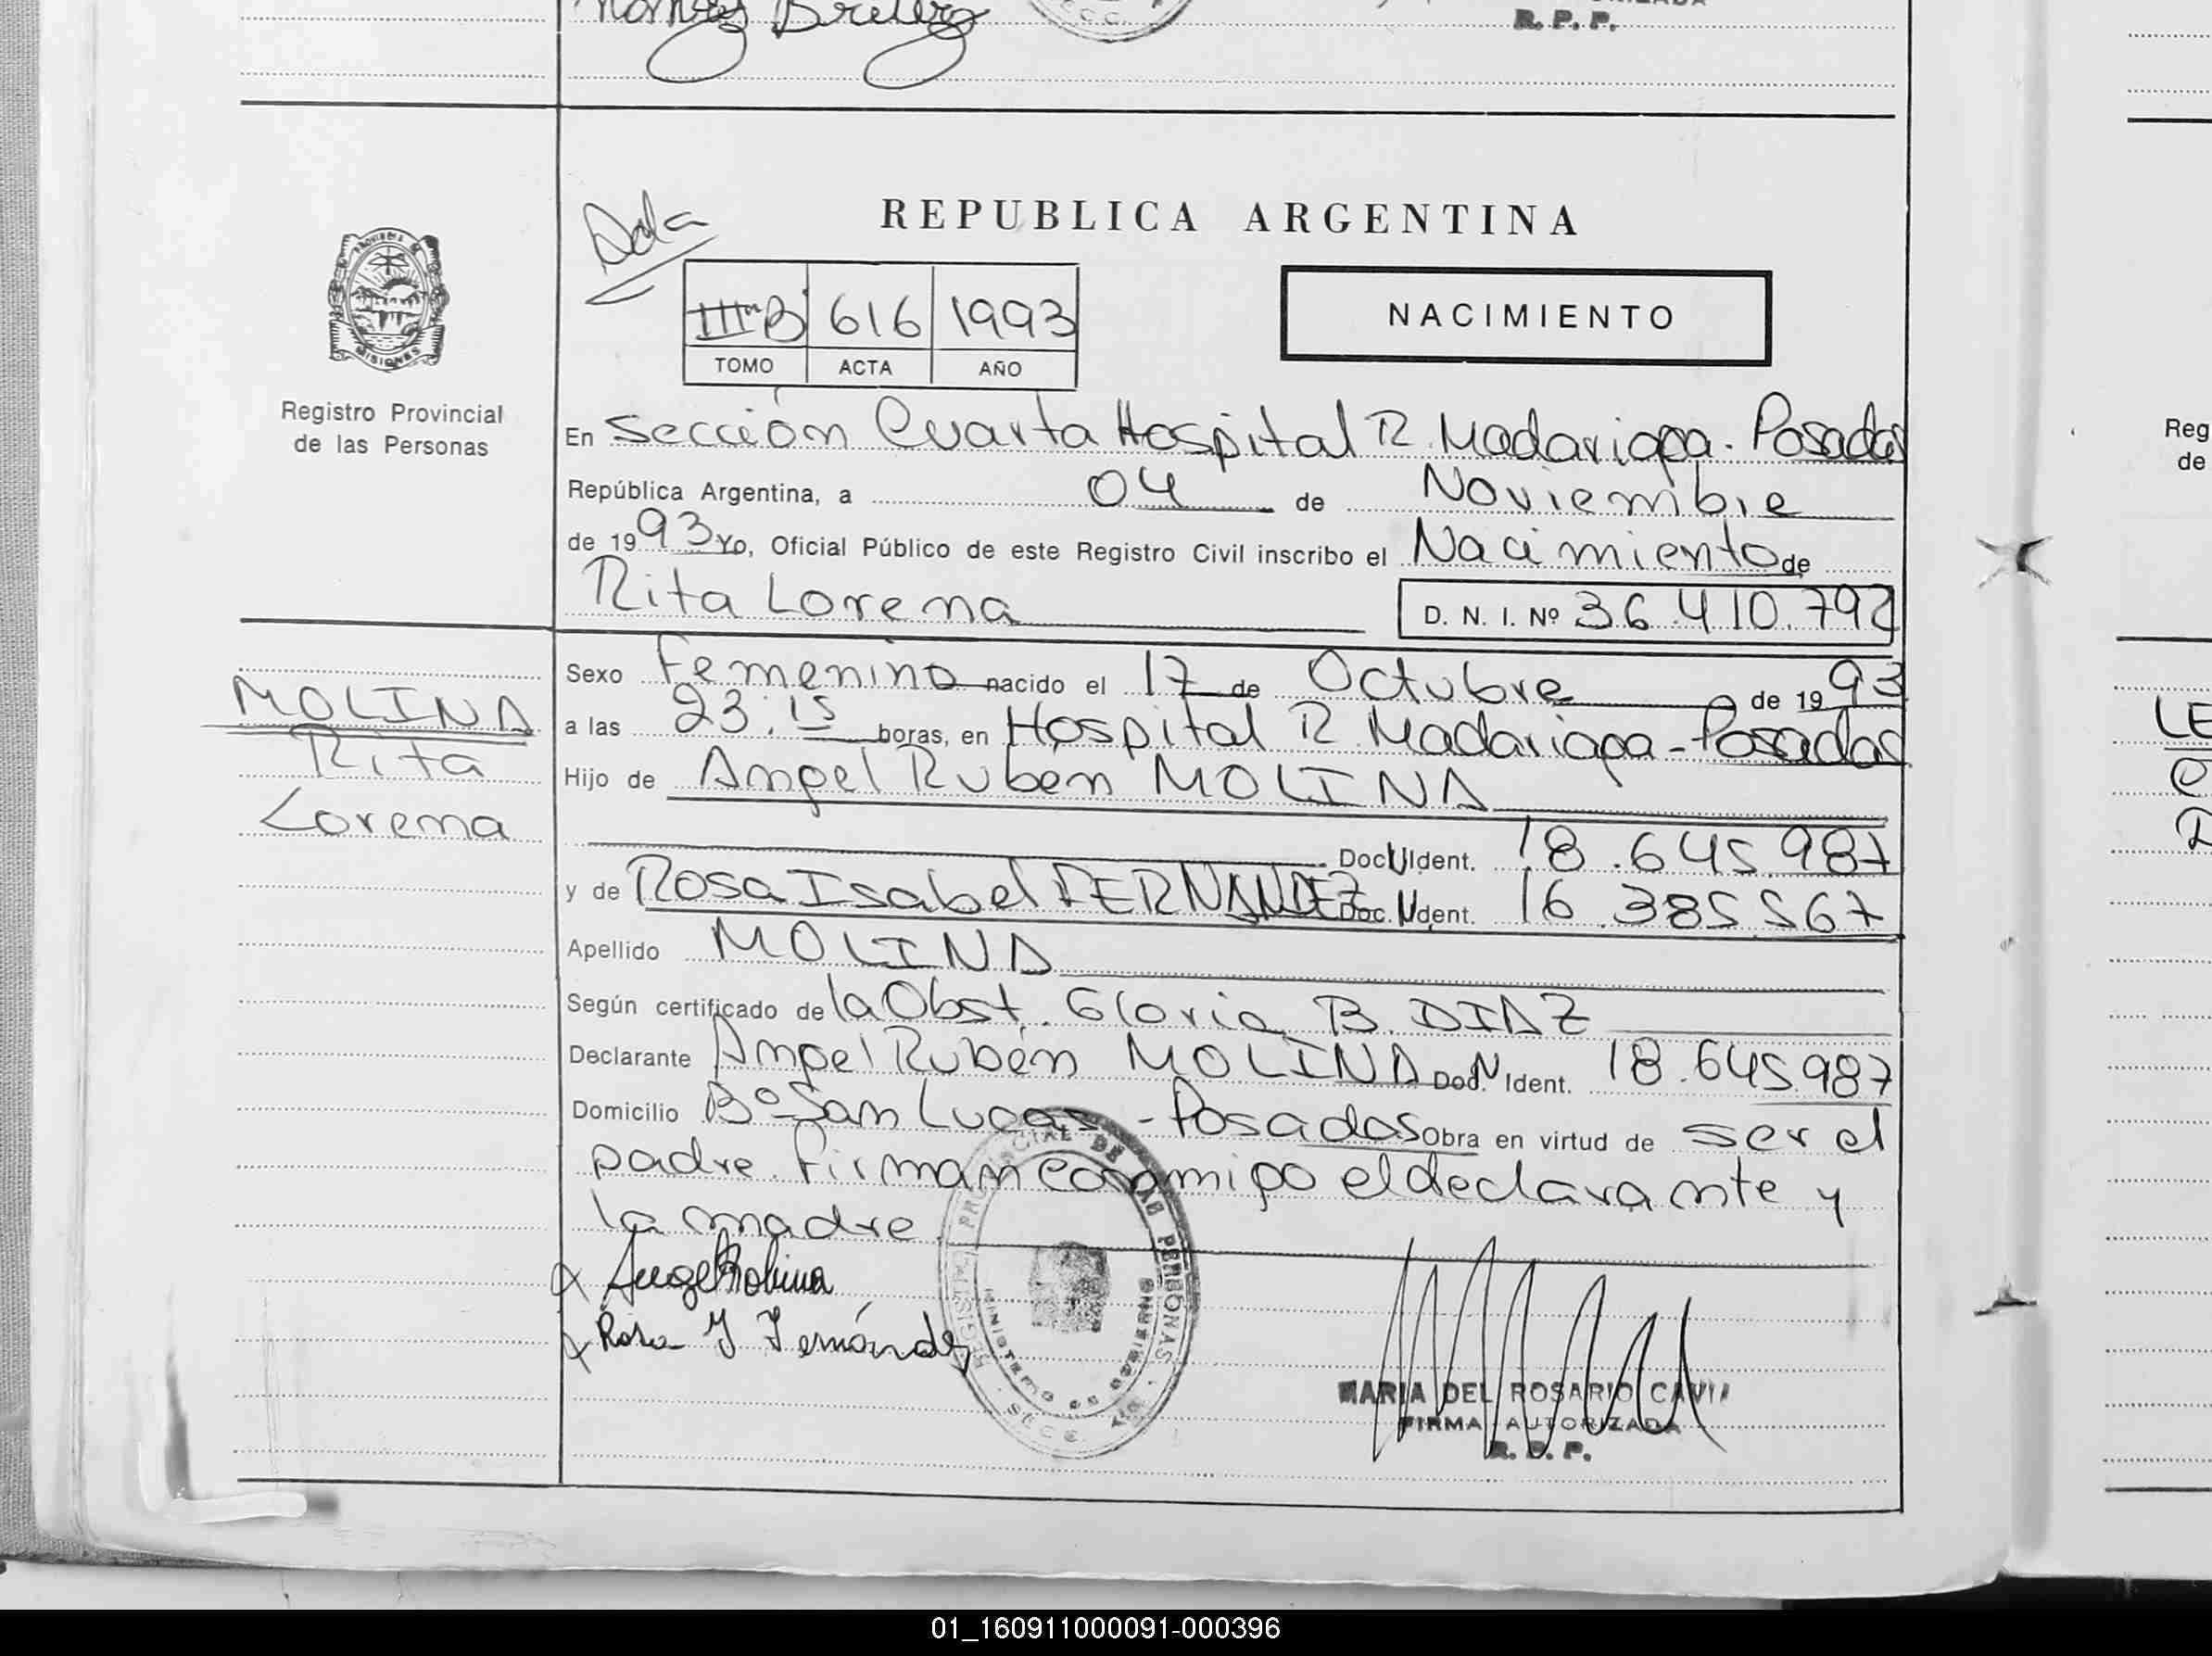 R. P. P.
Dda
REPUBLICA ARGENTINA
IIIºB 616 1993
TOMO ACTA AÑO
NACIMIENTO
MISIONES
Registro Provincial
de las Personas
En Sección Cuarta Hospital R. Madariaga - Posadas
República Argentina, a 04 de Noviembre
de 1993 Yo, Oficial Público de este Registro Civil inscribo el Nacimiento de
Rita Lorena D. N. I. Nº 36.410.792
Sexo Femenino nacido el 17 de Octubre de 1993
MOLINA
Rita
Lorena
a las 23:15 horas, en Hospital R. Madariaga - Posadas
Hijo de Angel Rubén MOLINA
Doc. Ident. 18.645.987
y de Rosa Isabel FERNANDEZ Doc. Ident. 16.385.567
Apellido MOLINA
Según certificado de la Obst. Gloria B. DIAZ
Declarante Angel Rubén MOLINA Doc. Ident. 18.645.987
Domicilio Bº San Lucas - Posadas Obra en virtud de ser el
padre. Firman conmigo el declarante y
la madre.
Angel Molina
Rosa I Fernández
REGISTRO PROVINCIAL DE LAS PERSONAS
MINISTERIO DE GOBIERNO
MARIA DEL ROSARIO CAVIA
FIRMA AUTORIZADA
R. P. P.
Reg
de
LE
01_160911000091-000396